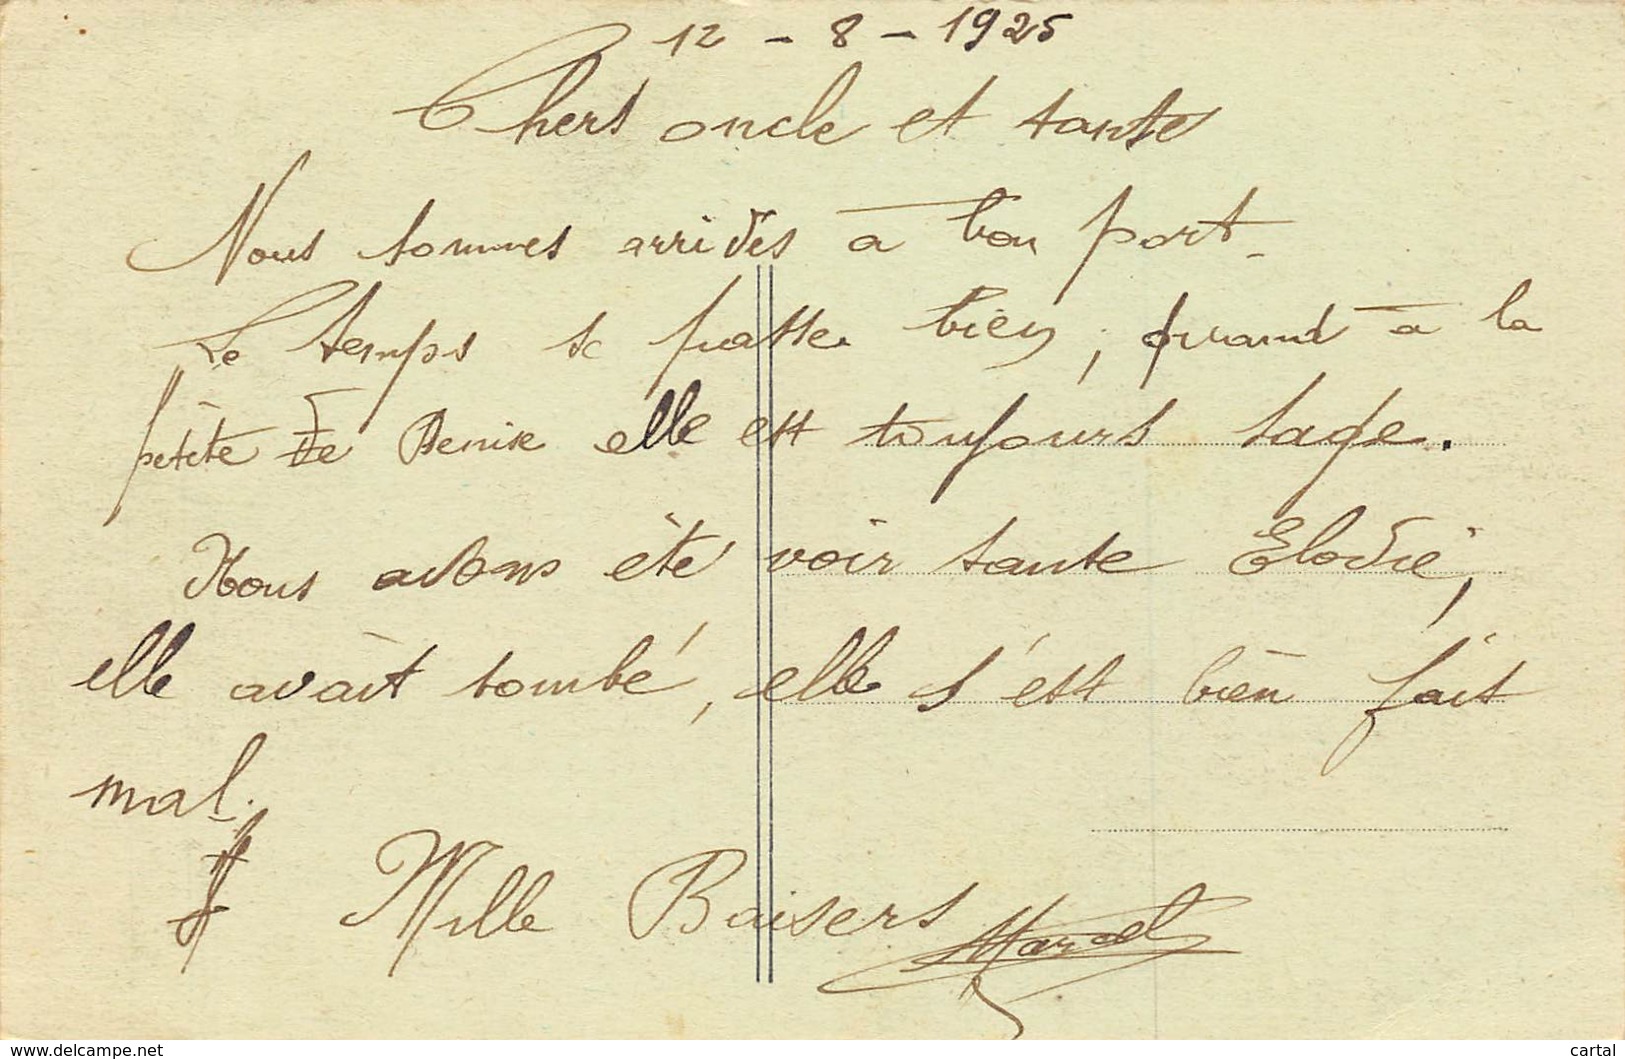 12 - 8 - 1925
Chers oncle et tante
Nous sommes arrivés a bon port.
Le temps se passe bien, quand à la
petite De Denise elle est toujours sage.
Nous avons été voir tante Elodie,
elle avait tombé, elle s'est bien fait
mal.
Mille Baisers Marcel
www.delcampe.net
cartal